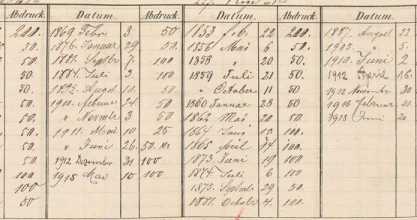 Abdruck. Datum. Abdruck. Datum. Abdruck. Datum.
200. 1869 Febr 3 50 1853 22 200. 1887. August 22
50. 1876. Januar 29 50. 1856 Mai 6 50. 1902. 5.
50. 1881. Septbr 7 100. 1858 " 20 50. 1910. Juni 2
50. 1884. Juli 2 100. 1859 Juli 21 50. 1912 April 16.
50. 1892. August 10 50. " October 11 50. 1912 November 30
50. 1910. Februar 24 50 1860 Januar 25 50 1915 Februar 21
50. " 4 50. 1862 Mai. 20 50. 1918 Juni 20
50. 1911. Mai 10 25 1864 Juni 13 100.
50. " Juni 26. 50. 1865 April 14 100.
50. 1912 Dezember 31 100 1873. Juni 19 100
100. 1918 Mai 10 100 1874 Juli 6 100
100 1875. Septbr 29 50.
50 1881. Octobr 4 100.